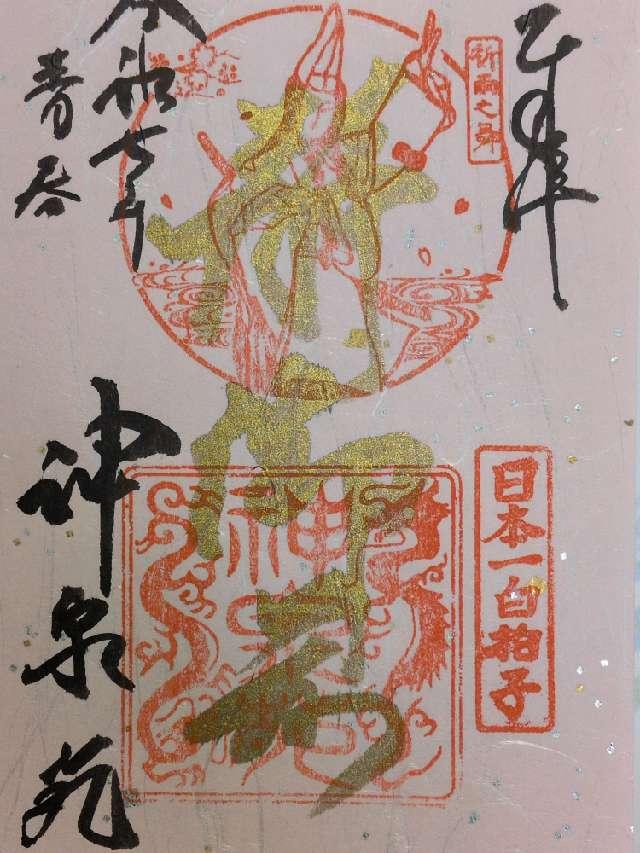 奉拝
祈雨之舞
日本一白拍子
静御前
令和七年
青春
神泉苑